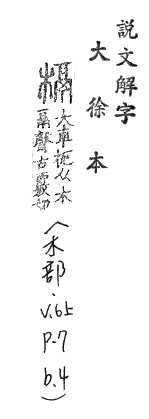 説文解字
大徐本
大車枙从木
鬲聲古覈切
(木部.v.6上P.7b.4)